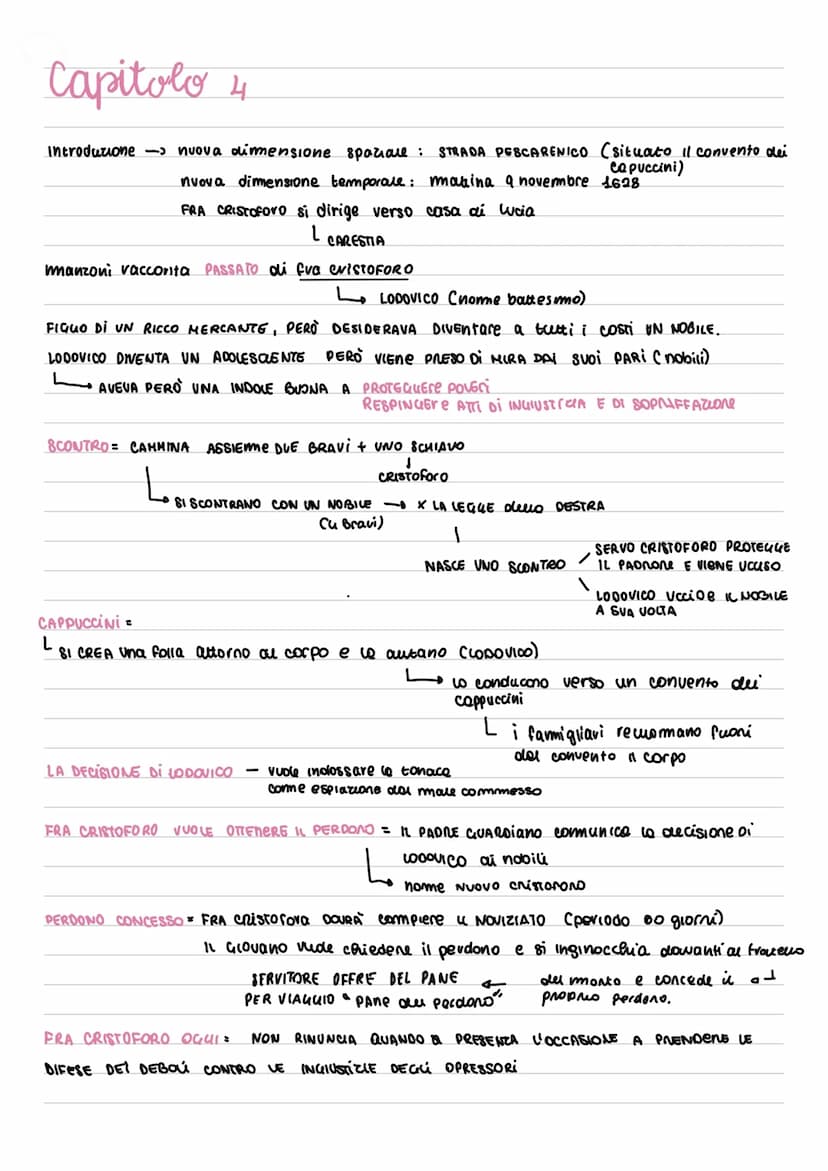 Capitolo 4
Introduzione → nuova dimensione spaziale : STRADA PESCARENICO (situato il convento dei capuccini)
nuova dimensione temporale : mattina 9 novembre 1628
FRA CRISTOFORO si dirige verso casa di Lucia
CARESTIA
manzoni racconta PASSATO di fra CRISTOFORO
LODOVICO (nome battesimo)
FIGLIO DI UN RICCO MERCANTE, PERÒ DESIDERAVA DIVENTARE a tutti i costi UN NOBILE.
LODOVICO DIVENTA UN ADOLESCENTE PERÒ VIENE PRESO DI MIRA DAI SUOI PARI (nobili)
AVEVA PERÒ UNA INDOLE BUONA A PROTEGGERE POVERI
RESPINGERE ATTI DI INGIUSTIZIA E DI SOPRAFFAZIONE
SCONTRO = CAMMINA ASSIEME DUE BRAVI + UNO SCHIAVO
CRISTOFORO
SI SCONTRANO CON UN NOBILE → X LA LEGGE della DESTRA
(4 Bravi)
NASCE UNO SCONTRO
SERVO CRISTOFORO PROTEGGE
IL PADRONE E VIENE UCCISO
LODOVICO UCCIDE IL NOBILE
A SUA VOLTA
CAPPUCCINI =
SI CREA una folla attorno al corpo e lo aiutano (LODOVICO)
lo conducono verso un convento dei
cappuccini
i famigliari reclamano fuori
dal convento il corpo
LA DECISIONE DI LODOVICO – vuole indossare la tonaca
come espiazione dal male commesso
FRA CRISTOFORO VUOLE OTTENERE IL PERDONO = IL PADRE GUARDIANO comunica la decisione di
LODOVICO ai nobili
nome NUOVO CRISTOFORO
PERDONO CONCESSO = FRA CRISTOFORO DOVRÀ compiere il NOVIZIATO (periodo 60 giorni)
IL GIOVANO vuole chiedere il perdono e si inginocchia davanti al fratello
SERVITORE OFFRE DEL PANE ← del morto e concede il
PER VIAGGIO " PANE del perdono" proprio perdono.
FRA CRISTOFORO OGGI : NON RINUNCIA QUANDO PRESENTA L'OCCASIONE A PRENDERE LE
DIFESE DEI DEBOLI CONTRO LE INGIUSTIZIE DEGLI OPRESSORI